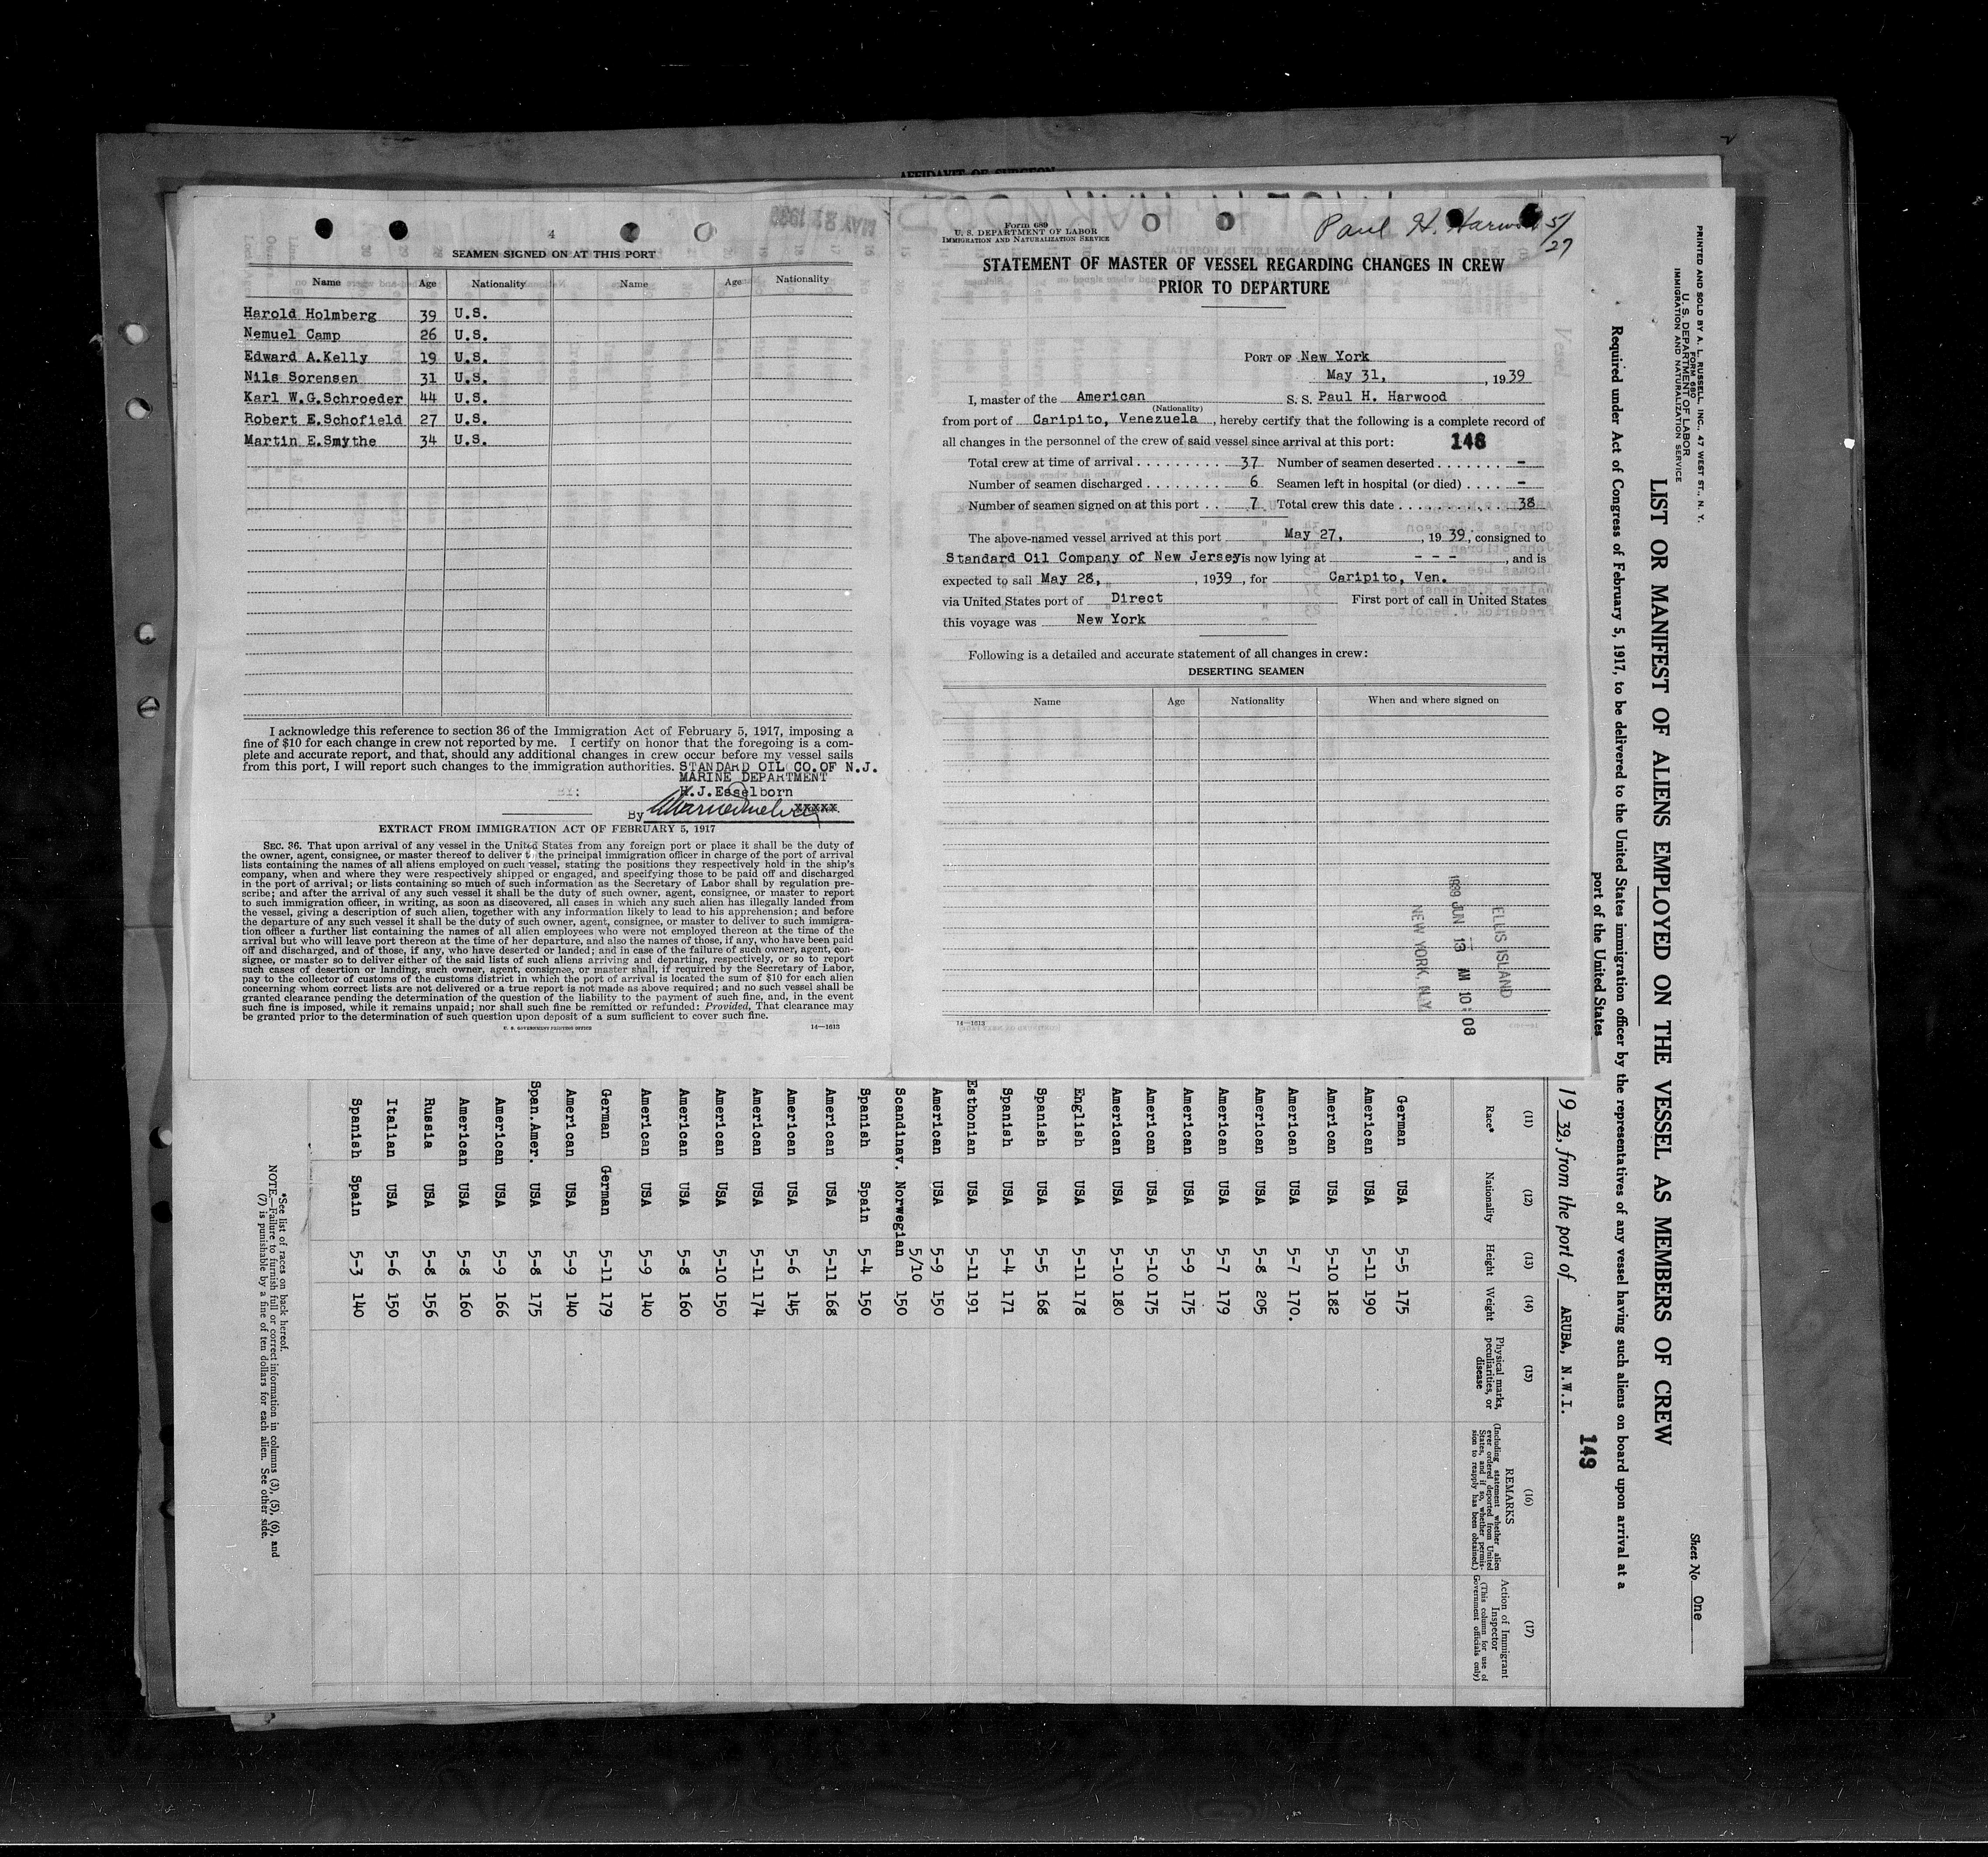 AFFIDAVIT OF SURGEON
4
SEAMEN SIGNED ON AT THIS PORT
Name Age Nationality Name Age Nationality
Harold Holmberg 39 U.S.
Nemuel Camp 26 U.S.
Edward A.Kelly 19 U.S.
Nils Sorensen 31 U.S.
Karl W.G.Schroeder 44 U.S.
Robert E.Schofield 27 U.S.
Martin E.Smythe 34 U.S.
I acknowledge this reference to section 36 of the Immigration Act of February 5, 1917, imposing a
fine of $10 for each change in crew not reported by me. I certify on honor that the foregoing is a com-
plete and accurate report, and that, should any additional changes in crew occur before my vessel sails
from this port, I will report such changes to the immigration authorities. STANDARD OIL CO.OF N.J.
MARINE DEPARTMENT
BY: H.J.Esselborn
By xxxxx
EXTRACT FROM IMMIGRATION ACT OF FEBRUARY 5, 1917
SEC. 36. That upon arrival of any vessel in the United States from any foreign port or place it shall be the duty of
the owner, agent, consignee, or master thereof to deliver to the principal immigration officer in charge of the port of arrival
lists containing the names of all aliens employed on such vessel, stating the positions they respectively hold in the ship's
company, when and where they were respectively shipped or engaged, and specifying those to be paid off and discharged
in the port of arrival; or lists containing so much of such information as the Secretary of Labor shall by regulation pre-
scribe; and after the arrival of any such vessel it shall be the duty of such owner, agent, consignee, or master to report
to such immigration officer, in writing, as soon as discovered, all cases in which any such alien has illegally landed from
the vessel, giving a description of such alien, together with any information likely to lead to his apprehension; and before
the departure of any such vessel it shall be the duty of such owner, agent, consignee, or master to deliver to such immigra-
tion officer a further list containing the names of all alien employees who were not employed thereon at the time of the
arrival but who will leave port thereon at the time of her departure, and also the names of those, if any, who have been paid
off and discharged, and of those, if any, who have deserted or landed; and in case of the failure of such owner, agent, con-
signee, or master so to deliver either of the said lists of such aliens arriving and departing, respectively, or so to report
such cases of desertion or landing, such owner, agent, consignee, or master shall, if required by the Secretary of Labor,
pay to the collector of customs of the customs district in which the port of arrival is located the sum of $10 for each alien
concerning whom correct lists are not delivered or a true report is not made as above required; and no such vessel shall be
granted clearance pending the determination of the question of the liability to the payment of such fine, and, in the event
such fine is imposed, while it remains unpaid; nor shall such fine be remitted or refunded: Provided, That clearance may
be granted prior to the determination of such question upon deposit of a sum sufficient to cover such fine.
U. S. GOVERNMENT PRINTING OFFICE 14—1613
Form 689
U. S. DEPARTMENT OF LABOR
IMMIGRATION AND NATURALIZATION SERVICE
Paul H. Harwood 5/27
STATEMENT OF MASTER OF VESSEL REGARDING CHANGES IN CREW
PRIOR TO DEPARTURE
PORT OF New York
May 31, , 1939
I, master of the American S. S. Paul H. Harwood
(Nationality)
from port of Caripito, Venezuela , hereby certify that the following is a complete record of
all changes in the personnel of the crew of said vessel since arrival at this port: 148
Total crew at time of arrival . . . . . . . . . 37 Number of seamen deserted . . . . . . . -
Number of seamen discharged . . . . . . . . 6 Seamen left in hospital (or died) . . . . -
Number of seamen signed on at this port . . 7 Total crew this date . . . . . . . . . . . 38
The above-named vessel arrived at this port May 27, , 1939, consigned to
Standard Oil Company of New Jersey is now lying at - - - , and is
expected to sail May 28, , 1939 , for Caripito, Ven.
via United States port of Direct First port of call in United States
this voyage was New York
Following is a detailed and accurate statement of all changes in crew:
DESERTING SEAMEN
Name Age Nationality When and where signed on
ELLIS ISLAND
1939 JUN 13 AM 10:08
NEW YORK, N.Y.
14—1613
PRINTED AND SOLD BY A. L. RUSSELL, INC., 47 WEST ST., N. Y.
FORM 680
U. S. DEPARTMENT OF LABOR
IMMIGRATION AND NATURALIZATION SERVICE
Sheet No. One
LIST OR MANIFEST OF ALIENS EMPLOYED ON THE VESSEL AS MEMBERS OF CREW
Required under Act of Congress of February 5, 1917, to be delivered to the United States immigration officer by the representatives of any vessel having such aliens on board upon arrival at a
port of the United States
149
19 39, from the port of ARUBA, N.W.I.
(11) (12) (13) (14) (15) (16) (17)
Race* Nationality Height Weight Physical marks, peculiarities, or disease REMARKS (Including statement whether alien ever ordered deported from United States, and if so, whether permission to reapply has been obtained.) Action of Immigrant Inspector (This column for use of Government officials only)
German USA 5-5 175
American USA 5-11 190
American USA 5-10 182
American USA 5-7 170.
American USA 5-8 205
American USA 5-7 179
American USA 5-9 175
American USA 5-10 175
American USA 5-10 180
English USA 5-11 178
Spanish USA 5-5 168
Spanish USA 5-4 171
Esthonian USA 5-11 191
American USA 5-9 150
Scandinav. Norwegian 5/10 150
Spanish Spain 5-4 150
American USA 5-11 168
American USA 5-6 145
American USA 5-11 174
American USA 5-10 150
American USA 5-8 160
American USA 5-9 140
German German 5-11 179
American USA 5-9 140
Span.Amer. USA 5-8 175
American USA 5-9 166
American USA 5-8 160
Russia USA 5-8 156
Italian USA 5-6 150
Spanish Spain 5-3 140
*See list of races on back hereof.
NOTE.—Failure to furnish full or correct information in columns (3), (5), (6), and
(7) is punishable by a fine of ten dollars for each alien. See other side.